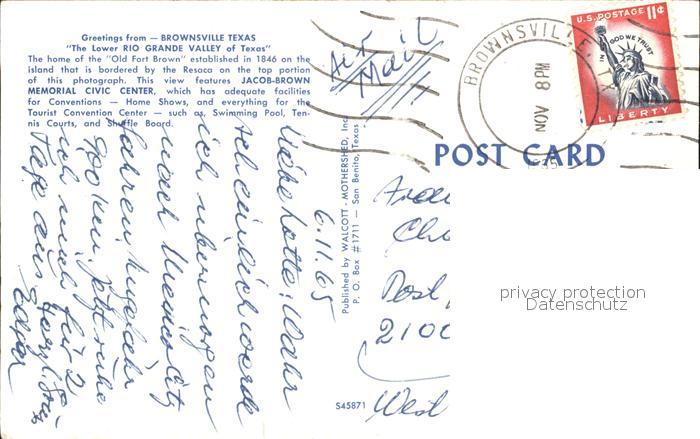 Greetings from — BROWNSVILLE TEXAS
"The Lower RIO GRANDE VALLEY of Texas"
The home of the "Old Fort Brown" established in 1846 on the
island that is bordered by the Resaca on the top portion
of this photograph. This view features JACOB-BROWN
MEMORIAL CIVIC CENTER, which has adequate facilities
for Conventions — Home Shows, and everything for the
Tourist Convention Center — such as, Swimming Pool, Ten-
nis Courts, and Shuffle Board.
Air
Mail
BROWNSVILLE
NOV 8 PM
U.S. POSTAGE 11¢
IN GOD WE TRUST
LIBERTY
POST CARD
Published by WALCOTT - MOTHERSHED, Inc.
P. O. Box #1711 — San Benito, Texas
6.11.65
Liebe Lotte! Wahr
scheinlich werde
ich übermorgen
nach Mexico City
fahren.
Jetzt ruhe
ich mich für 2
Tage aus. Herzl.
Edgar
Post
2100
West
S45871
privacy protection
Datenschutz